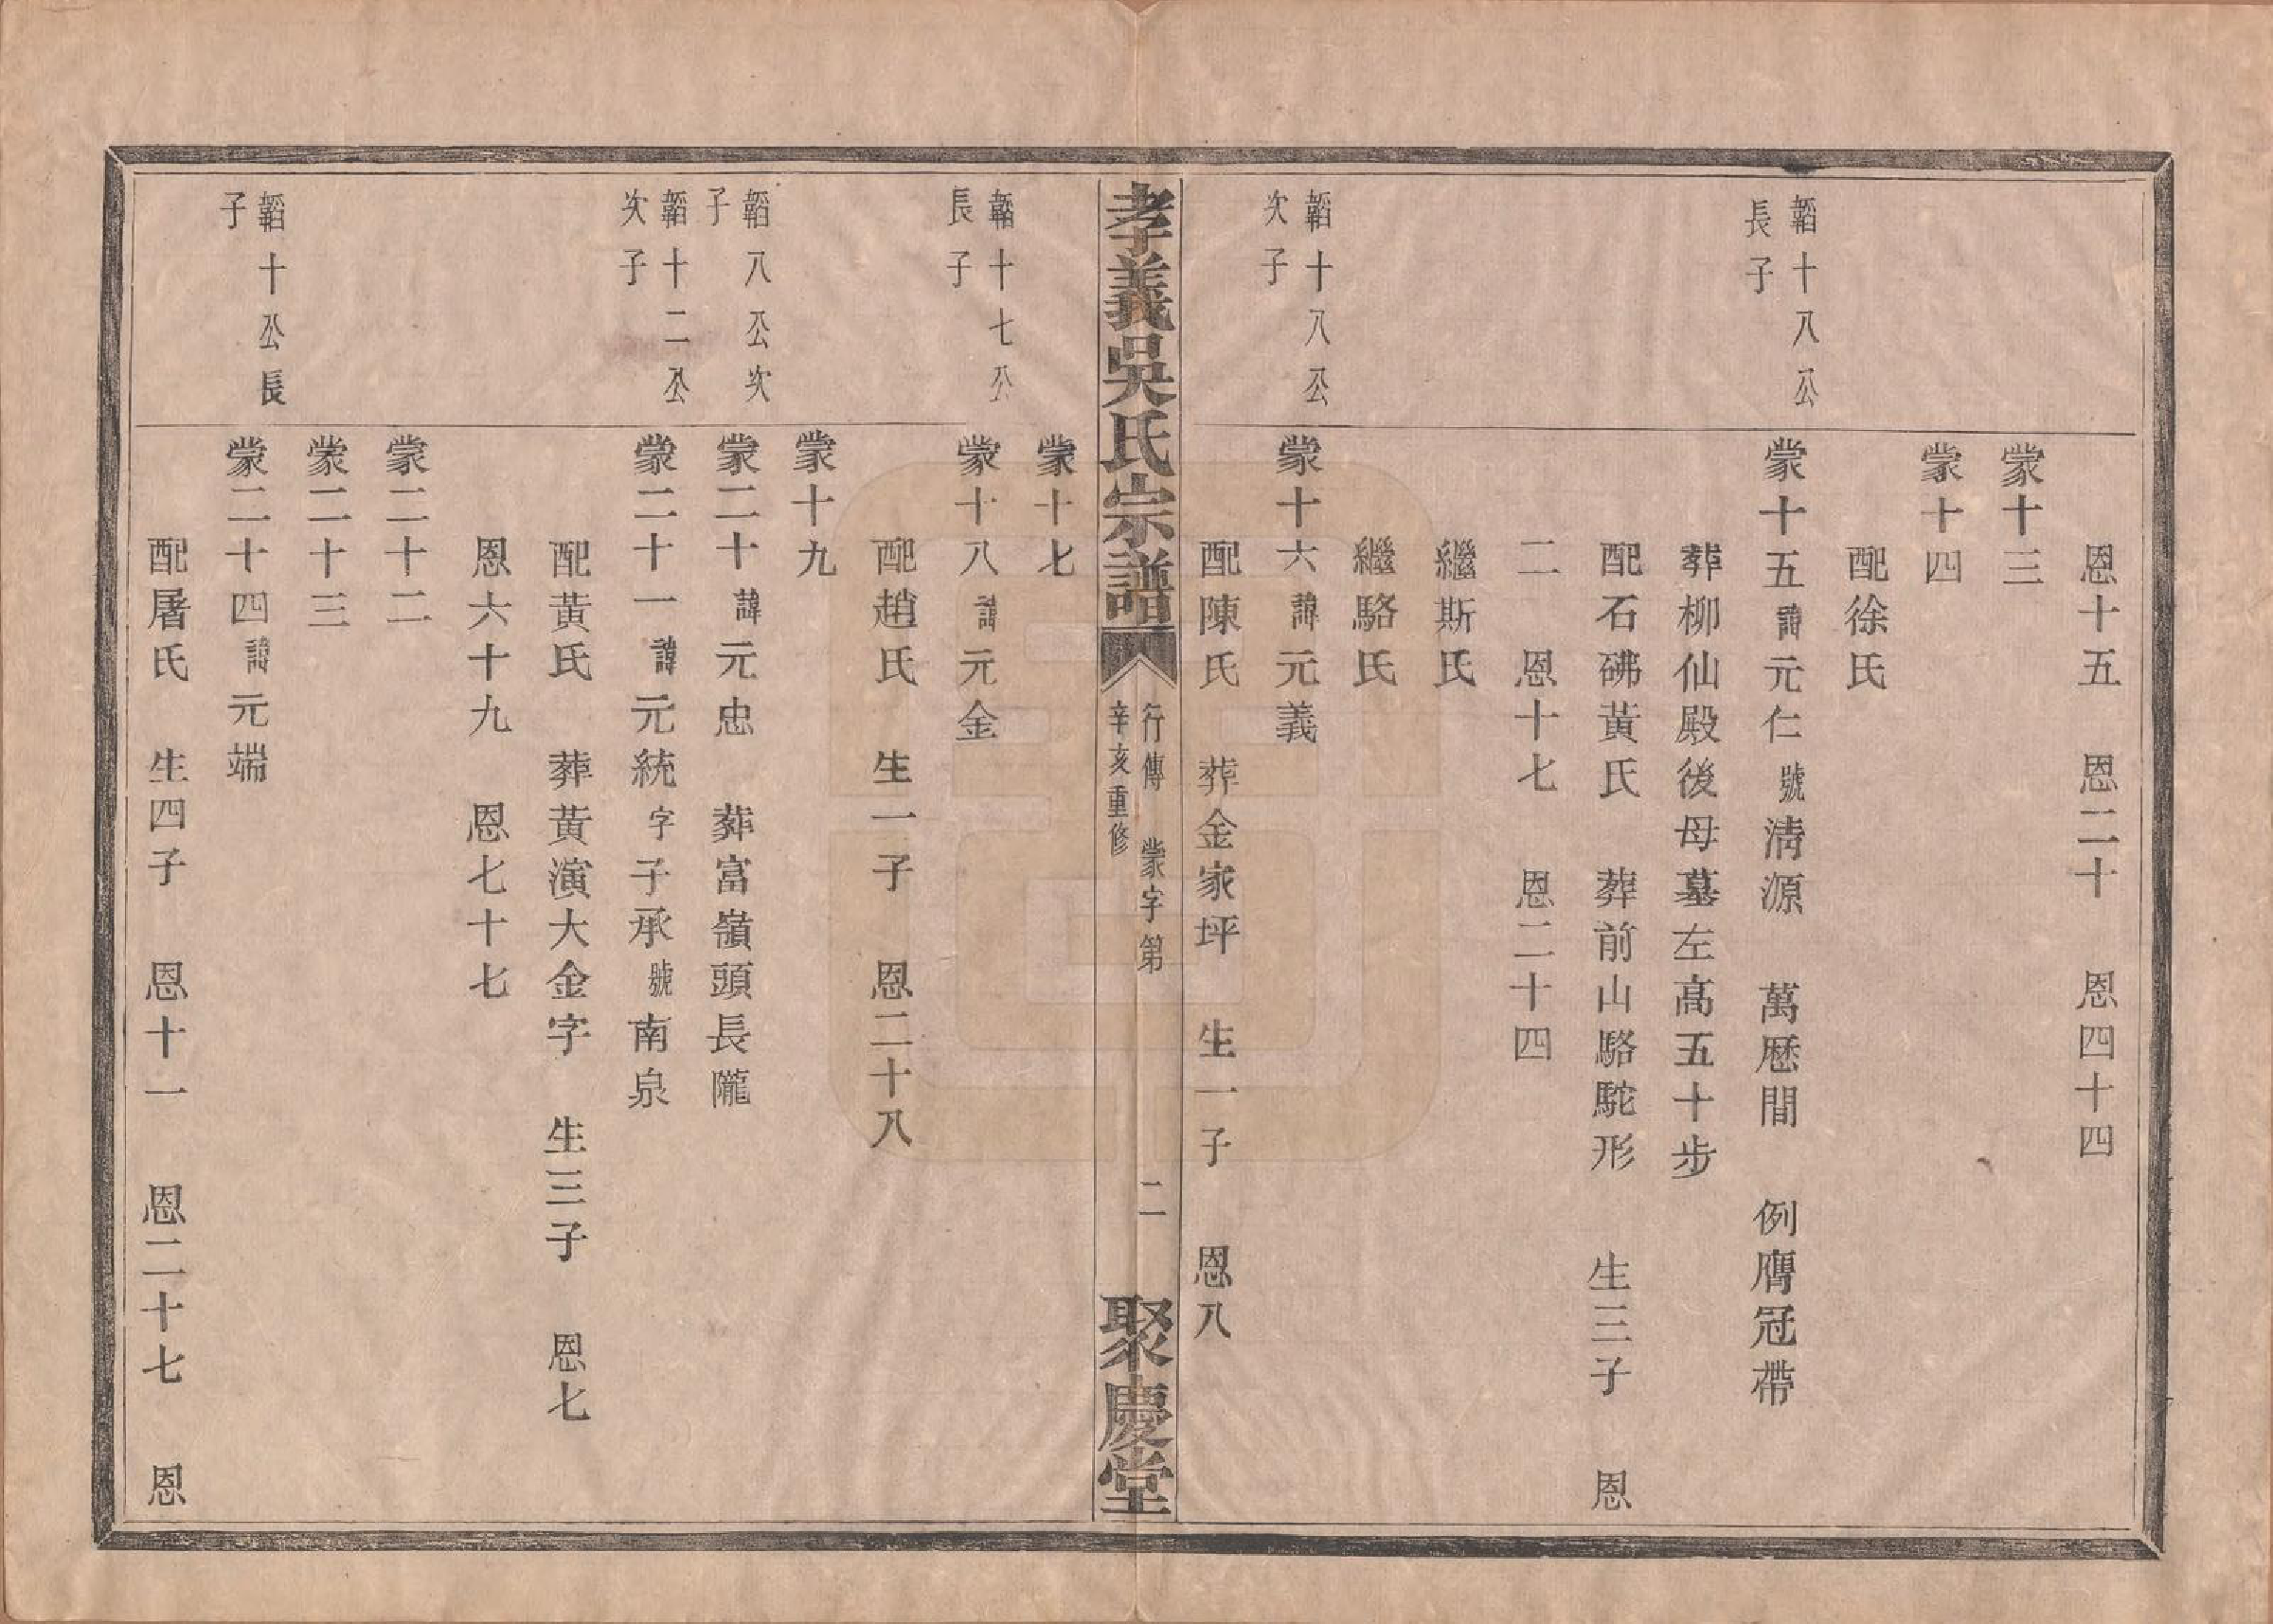 恩十五　恩二十　恩四十四
蒙十三
蒙十四
配徐氏
韜十八公
長子
蒙十五諱元仁號淸源　萬歷間　例膺冠帶
葬柳仙殿後母墓左高五十步
配石砩黃氏　葬前山駱駝形　生三子　恩
二　恩十七　恩二十四
繼斯氏
繼駱氏
韜十八公
次子
蒙十六諱元義
配陳氏　葬金家坪　生一子　恩八
孝義吳氏宗譜
行傳　蒙字第　二
辛亥重修
聚慶堂
蒙十七
韜十七公
長子
蒙十八諱元金
配趙氏　生一子　恩二十八
蒙十九
韜八公次
子
蒙二十諱元忠　葬富嶺頭長隴
韜十二公
次子
蒙二十一諱元統字子承號南泉
配黃氏　葬黃演大金字　生三子　恩七
恩六十九　恩七十七
蒙二十二
蒙二十三
韜十公長
子
蒙二十四諱元端
配屠氏　生四子　恩十一　恩二十七　恩